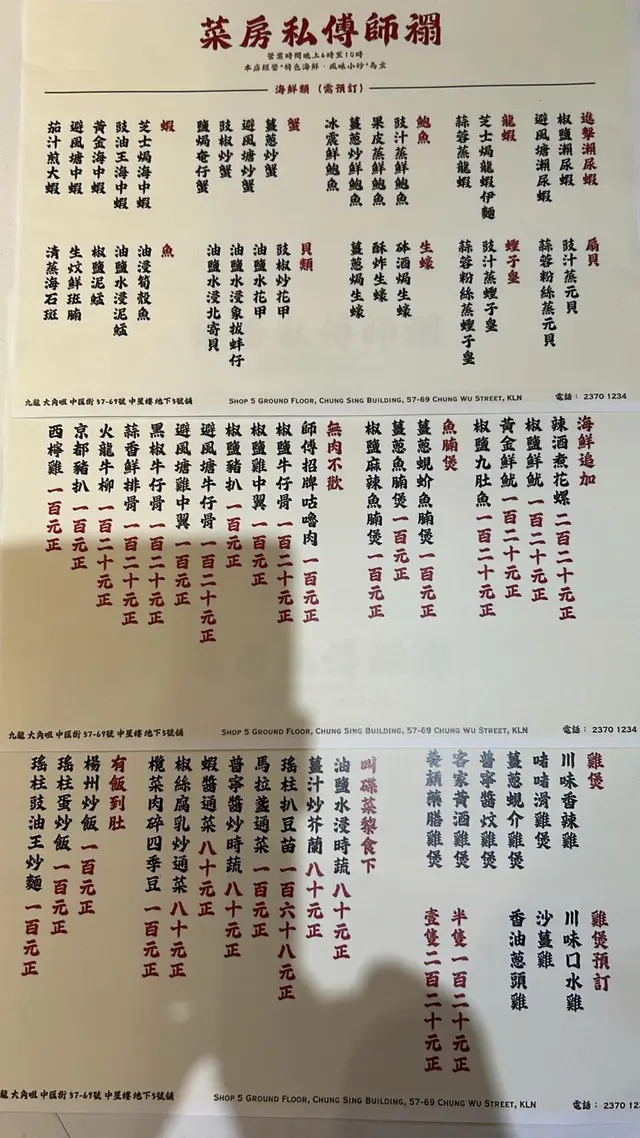 禤師傅私房菜
營業時間晚上6時至10時
本店經營“特色海鮮‧風味小炒”為主
海鮮類 (需預訂)
進擊瀨尿蝦
椒鹽瀨尿蝦
避風塘瀨尿蝦
龍蝦
芝士焗龍蝦伊麵
蒜蓉蒸龍蝦
鮑魚
豉汁蒸鮮鮑魚
果皮蒸鮮鮑魚
薑蔥炒鮮鮑魚
冰震鮮鮑魚
蟹
薑蔥炒蟹
避風塘炒蟹
豉椒炒蟹
鹽焗奄仔蟹
蝦
芝士焗海中蝦
豉油王海中蝦
黃金海中蝦
避風塘中蝦
茄汁煎大蝦
扇貝
豉汁蒸元貝
蒜蓉粉絲蒸元貝
蟶子皇
豉汁蒸蟶子皇
蒜蓉粉絲蒸蟶子皇
生蠔
砵酒焗生蠔
酥炸生蠔
薑蔥焗生蠔
貝類
豉椒炒花甲
油鹽水花甲
油鹽水浸象拔蚌仔
油鹽水浸北寄貝
魚
油浸筍殼魚
油鹽水浸泥鯭
椒鹽泥鯭
生炆鮮斑腩
清蒸海石斑
九龍 大角咀 中匯街 57-69號 中星樓 地下5號舖
SHOP 5 GROUND FLOOR, CHUNG SING BUILDING, 57-69 CHUNG WU STREET, KLN
電話: 2370 1234
海鮮追加
辣酒煮花螺 二百二十元正
椒鹽鮮魷 一百二十元正
黃金鮮魷 一百二十元正
椒鹽九肚魚 一百二十元正
魚腩煲
薑蔥蜆蚧魚腩煲 一百元正
薑蔥魚腩煲 一百元正
椒鹽麻辣魚腩煲 一百元正
無肉不歡
師傅招牌咕嚕肉 一百元正
椒鹽牛仔骨 一百二十元正
椒鹽雞中翼 一百元正
椒鹽豬扒 一百元正
避風塘牛仔骨 一百二十元正
避風塘雞中翼 一百元正
黑椒牛仔骨 一百二十元正
蒜香鮮排骨 一百二十元正
火龍牛柳 一百二十元正
京都豬扒 一百元正
西檸雞 一百元正
九龍 大角咀 中匯街 57-69號 中星樓 地下5號舖
SHOP 5 GROUND FLOOR, CHUNG SING BUILDING, 57-69 CHUNG WU STREET, KLN
電話: 2370 1234
雞煲
川味香辣雞
啫啫滑雞煲
薑蔥蜆介雞煲
普寧醬炆雞煲
客家黃酒雞煲
美顏藥膳雞煲
雞煲預訂
川味口水雞
沙薑雞
香油蔥頭雞
半隻一百二十元正
壹隻二百二十元正
叫碟菜黎食下
油鹽水浸時蔬 八十元正
薑汁炒芥蘭 八十元正
瑤柱扒豆苗 一百六十八元正
馬拉盞通菜 一百元正
普寧醬炒時蔬 八十元正
蝦醬通菜 八十元正
椒絲腐乳炒通菜 八十元正
欖菜肉碎四季豆 一百元正
有飯到肚
楊州炒飯 一百元正
瑤柱蛋炒飯 一百元正
瑤柱豉油王炒麵 一百元正
龍 大角咀 中匯街 57-69號 中星樓 地下5號舖
SHOP 5 GROUND FLOOR, CHUNG SING BUILDING, 57-69 CHUNG WU STREET, KLN
電話: 2370 12